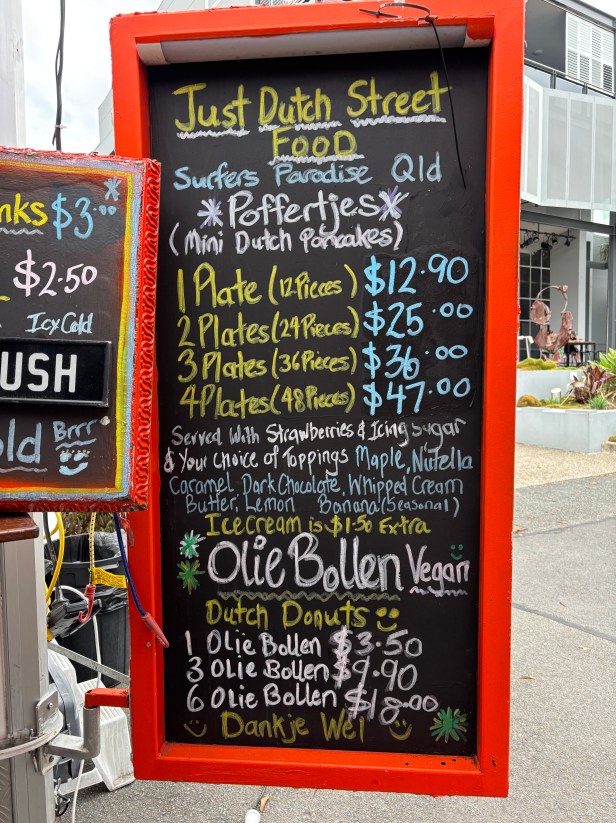 nks $3.00
$2.50
Icy Cold
USH
old Brrr
Just Dutch Street
FOOD
Surfers Paradise Qld
Poffertjes
(Mini Dutch Pancakes)
1 Plate (12 Pieces) $12.90
2 Plates (24 Pieces) $25.00
3 Plates (36 Pieces) $36.00
4 Plates (48 Pieces) $47.00
Served With Strawberries & Icing Sugar
& Your Choice of Toppings Maple, Nutella
Caramel, Dark Chocolate, Whipped Cream
Butter, Lemon Banana (Seasonal)
Icecream is $1.50 Extra
Olie Bollen Vegan
Dutch Donuts
1 Olie Bollen $3.50
3 Olie Bollen $9.90
6 Olie Bollen $18.00
Dankje Wel